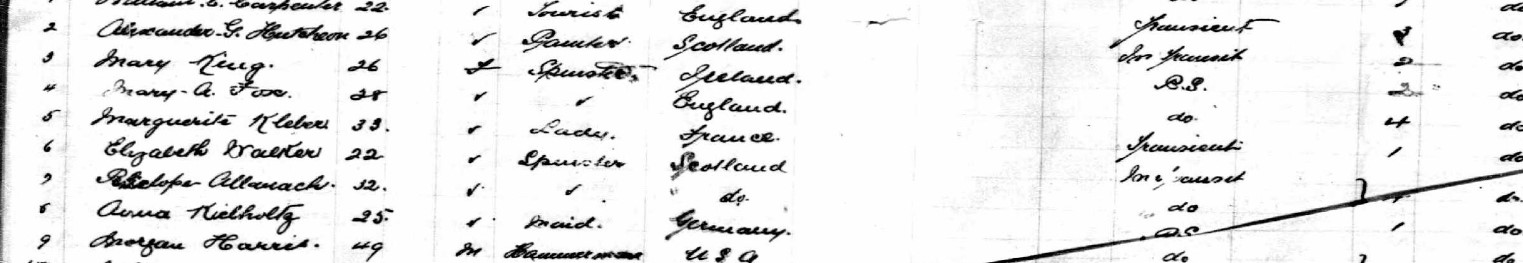 William. C. Carpenter 22 ✓ Tourist England
2 Alexander. G. Hutcheon 26 ✓ Painter. Scotland. Transient 3 do
3 Mary King. 26 f Spinster Ireland. In transit 2 do
4 Mary. A. Fox. 28 ✓ ✓ England. B.S. 2 do
5 Marguerite Kleber 33. ✓ Lady. France. do. 4 do
6 Elizabeth Walker 22 ✓ Spinster Scotland Transient 1 do
7 Penelope Allanach. 32. ✓ ✓ do. In transit do
8 Anna Kielholtz 25 ✓ Maid. Germany. do 1 do
9 Morgan Harris. 49 M Hammerman U S A do do